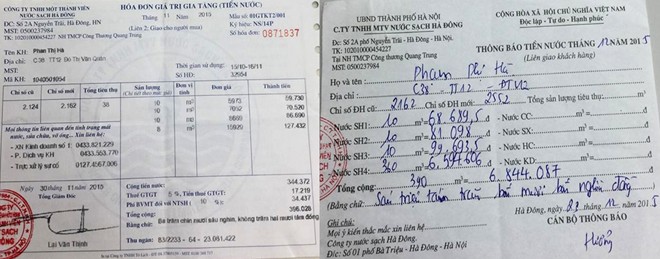 C.TY TNHH MỘT THÀNH VIÊN
NƯỚC SẠCH HÀ ĐÔNG
Đc: Số 2A Nguyễn Trãi, Hà Đông, HN
MST: 0500237984
TK: 102010000454227 tại: NH TMCP Công Thương Quang Trung
HÓA ĐƠN GIÁ TRỊ GIA TĂNG (TIỀN NƯỚC)
Tháng 11 Năm 2015
(Liên 2: Giao cho người mua)
Mẫu số: 01GTKT2/001
Ký hiệu: NS/14P
Số hóa đơn: 0871837
Tên KH: Phan Thị Hà
MST:
Mã KH:
Thời gian sử dụng: 13/10-16/11
Số HĐ: 32954
Chỉ số cũ Chỉ số mới Tổng tiêu thụ Sản lượng Đơn vị tính Đơn giá Thành tiền
2.124 2.162 38
10 5973 59.730
10 70.520
10 86.690
8 15929 127.432
Mọi thông tin liên quan đến tình trạng mất
nước, sửa chữa, vỡ ống... Xin liên hệ:
- XN Kinh doanh số 1: 0433.821.229
- P. Dịch vụ KH 0433.553.770
- Trực xử lý sự cố 0127.4167.006
Ngày 30 tháng 11 năm 2015
Tổng Giám Đốc
Lại Văn Thịnh
Cộng tiền nước: 344.372
Thuế GTGT 5 %, Tiền GTGT: 17.219
Phí BVMT đối với NTSH 10 %: 34.437
396.028
Bằng chữ: Ba trăm chín mươi sáu nghìn, không trăm hai mươi tám đồng
Thu ngân: 83/2233 - 64 - 23.061.422
UBND THÀNH PHỐ HÀ NỘI
C.TY TNHH MTV NƯỚC SẠCH HÀ ĐÔNG
Đc: Số 2A phố Nguyễn Trãi - Hà Đông - Hà Nội
TK: 102010000454227
Tại NH TMCP Công thương Quang Trung
MST: 0500237984
CỘNG HÒA XÃ HỘI CHỦ NGHĨA VIỆT NAM
Độc lập - Tự do - Hạnh phúc
THÔNG BÁO TIỀN NƯỚC THÁNG 12/2015
(Liên giao khách hàng)
Họ và tên: Phan Thị Hà
Địa chỉ: C38 TT12 ĐTV12
Chỉ số ĐH cũ: 2162 Chỉ số ĐH mới: 2552 Tổng sản lượng tiêu thụ:
Nước SH1: 10 m³= 68.689,5 đ - Nước CC: m³= đ
Nước SH2: 10 m³= 81.098 đ - Nước SX: m³= đ
Nước SH3: 10 m³= 99.693,5 đ - Nước HC: m³= đ
Nước SH4: 360 m³= 6.594.606 đ - Nước KD: m³= đ
Tổng cộng: 390 m³= 6.844.087 đ
(Bằng chữ: Sáu triệu tám trăm bốn mươi bốn nghìn đồng)
Hà Đông, ngày 29 tháng 12 năm 2015
CÁN BỘ THÔNG BÁO
Hường
Ghi chú:
Mọi ý kiến thắc mắc xin liên hệ:
Công ty nước sạch Hà Đông
Đc: Số 01 phố Bà Triệu - Hà Đông - Hà Nội